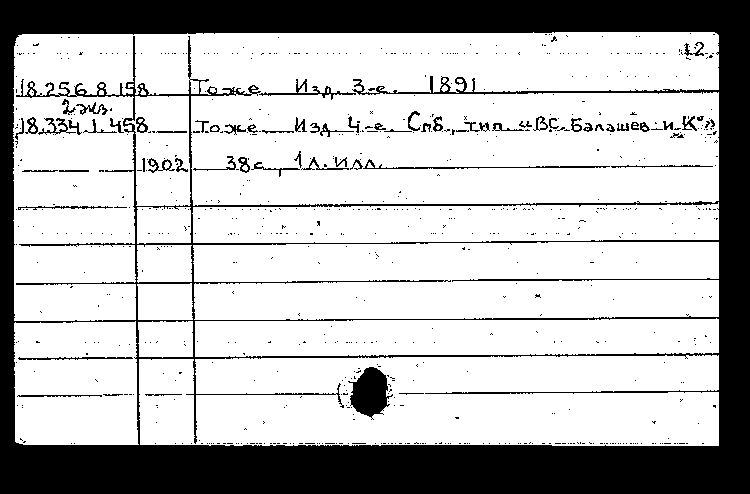 12
18.256.8.158 Тоже Изд. 3-е. 1891
2 экз.
18.334.1.458 Тоже Изд 4-е. Спб., тип. «В.С. Балашев и К°»
1902 38с., 1л. илл.